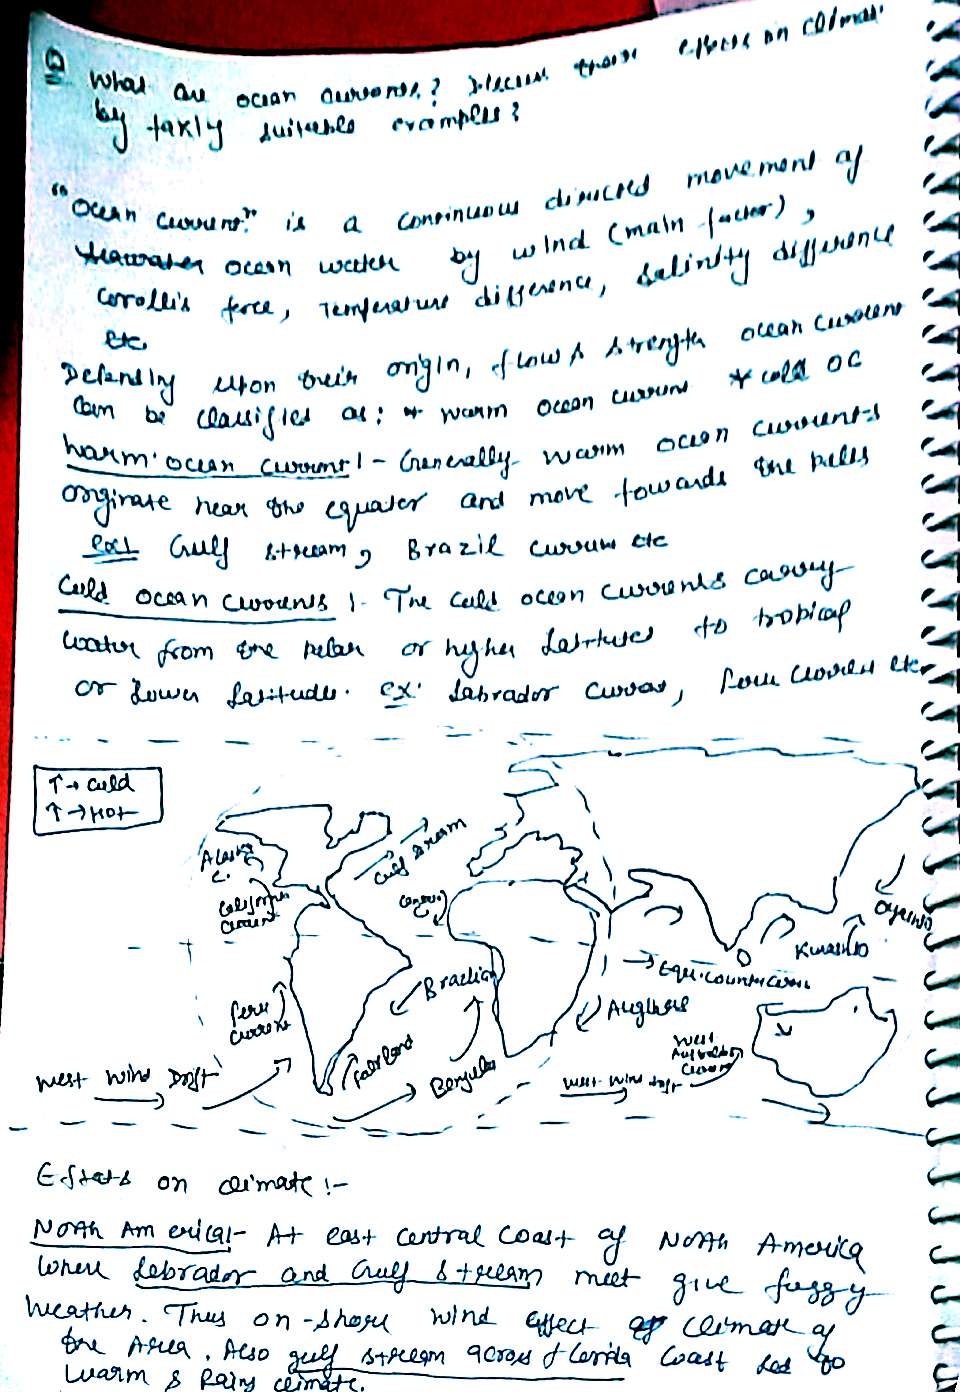 Q What are ocean currents? Discuss those effects on climat
by taking suitable examples?
"Ocean current" is a continuous directed movement of
ocean water by wind (main factor),
Corrolis force, Temperature difference, salinity difference
etc
Depending upon their origin, flow & strength ocean current
can be classified as: * warm ocean current * cold OC
warm ocean current :- Generally warm ocean currents
originate near the equator and move towards the poles
ex:- Gulf stream, Brazil current etc
Cold ocean currents :- The cold ocean currents carry
water from the polar or higher latitudes to tropical
or lower latitude. ex: Labrador current, Peru current etc
↑ → cold
↑ → Hot
Alaska
C.
California
Current
Gulf stream
Canary
Oyeshio
Kuroshio
→ Equi. counter current
Brazil
Peru
current
Aughlas
West
Australian
Current
Falkland
Benguela
West Wind Drift
West Wind drift
Effects on climate :-
North America:- At east central coast of North America
where Labrador and Gulf stream meet give foggy
weather. Thus on-shore wind effect climate of
the Area. Also gulf stream across Florida coast led to
warm & Rainy climate.